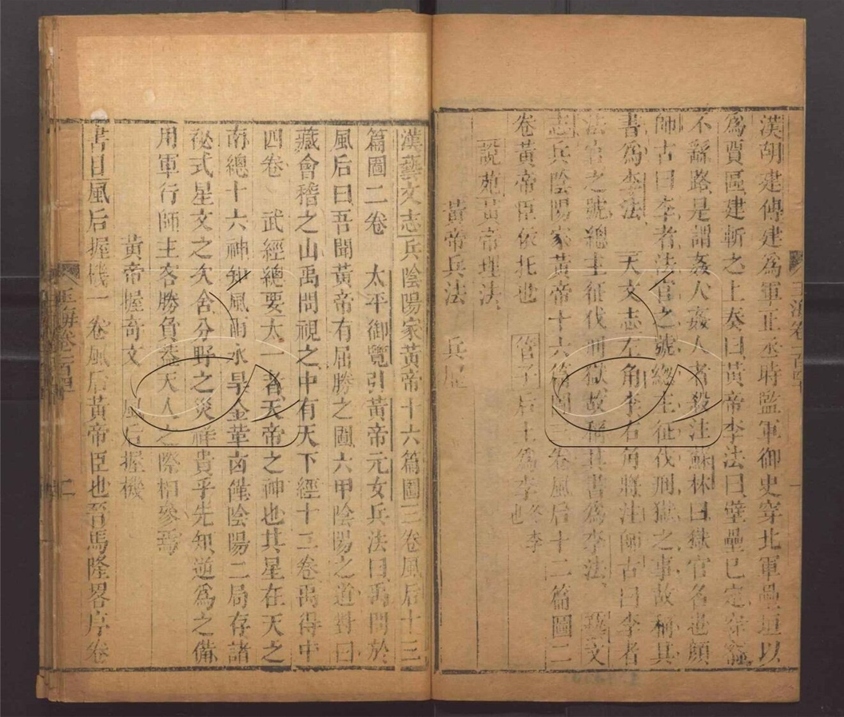 漢胡建傳建爲軍正丞時監軍御史穿北軍壘垣以
爲賈區建斬之上奏曰黃帝李法曰壁壘已定穿窬
不繇路是謂姦人姦人者殺注蘇林曰獄官名也顔
師古曰李者法官之號總主征伐刑獄之事故稱其
書爲李法 天文志左角李右角將注師古曰李者
法官之號總主征伐刑獄故稱其書爲李法 藝文
志兵陰陽家黃帝十六篇圖三卷風后十三篇圖二
卷黃帝臣依托也 管子后土爲李
說苑黃帝理法
黃帝兵法 兵
漢藝文志兵陰陽家黃帝十六篇圖三卷風后十三
篇圖二卷 太平御覽引黃帝元女兵法曰禹問於
風后曰吾聞黃帝有屈勝之圖六甲陰陽之道對曰
藏會稽之山禹問視之中有天下經十二卷禹得中
四卷 武經總要太一者天帝之神也其星在天之
南總十六神知風雨水旱金革凶饉陰陽二局存諸
祕式星文之次舍分野之災祥貴乎先知逆爲之備
用軍行師主客勝負蓋天人之際相參焉
黃帝握奇文 風后握機
書目風后握機一卷風后黃帝臣也晉馬隆畧序卷
玉海卷一百四十
二